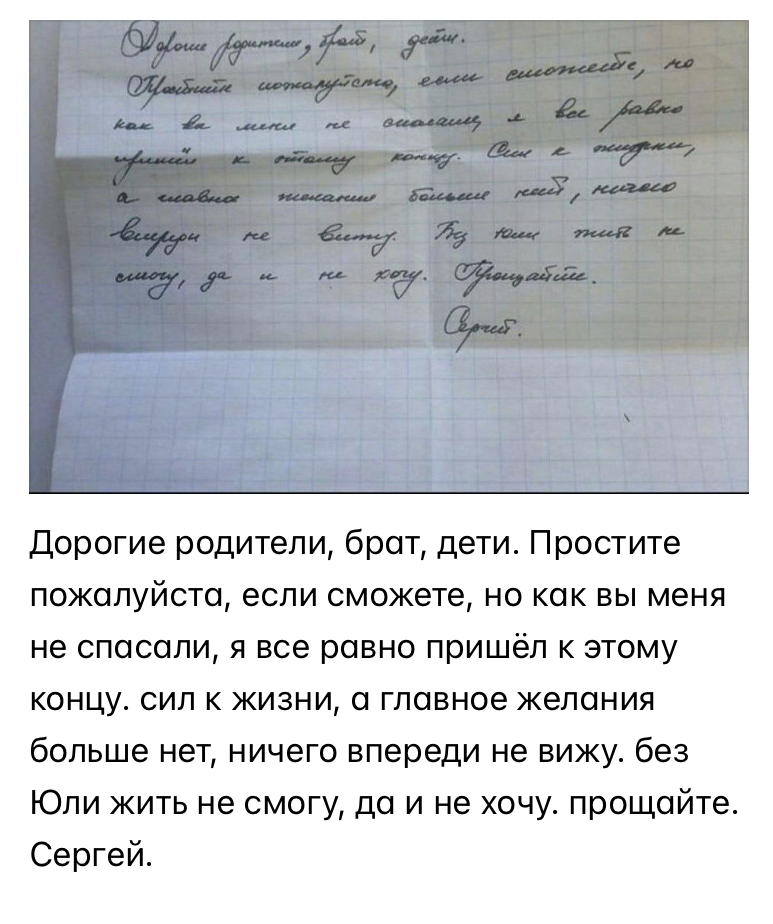 Дорогие родители, брат, дети.
Простите пожалуйста, если сможете, но
как вы меня не спасали, я все равно
пришёл к этому концу. Сил к жизни,
а главное желания больше нет, ничего
впереди не вижу. Без Юли жить не
смогу, да и не хочу. Прощайте.
Сергей.
Дорогие родители, брат, дети. Простите
пожалуйста, если сможете, но как вы меня
не спасали, я все равно пришёл к этому
концу. сил к жизни, а главное желания
больше нет, ничего впереди не вижу. без
Юли жить не смогу, да и не хочу. прощайте.
Сергей.